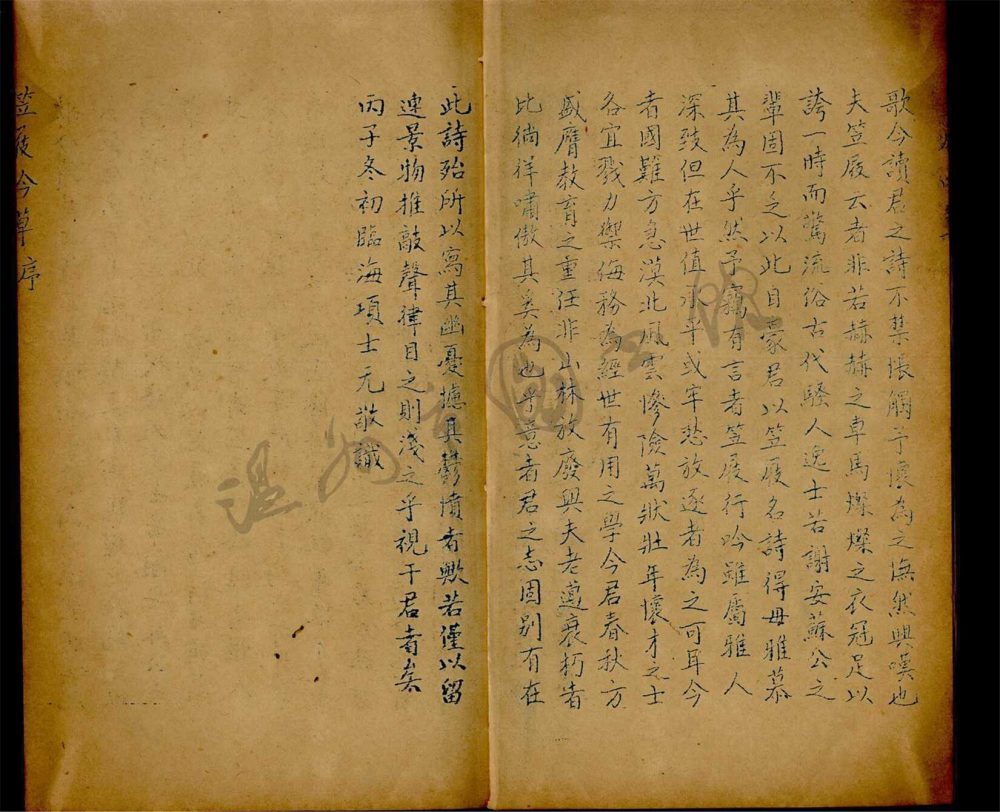 歌今讀君之詩不禁悵觸予懷為之憮然興嘆也
夫笠屐云者非若赫赫之車馬燦燦之衣冠足以
誇一時而驚流俗古代騷人逸士若謝安蘇公之
輩固不乏以此自豪君以笠屐名詩得毋雅慕
其為人乎然予竊有言者笠屐行吟雖屬雅人
深致但在世值承平或牢愁放逐者為之可耳今
者國難方急漠北風雲慘險萬狀壯年懷才之士
各宜戮力禦侮務為經世有用之學今君春秋方
盛膺教育之重任非山林放廢與夫老邁衰朽者
比徜徉嘯傲其奚為也乎意者君之志固别有在
此詩殆所以寫其幽憂攄其鬱憤者歟若僅以留
連景物推敲聲律目之則淺之乎視干君者矣
丙子冬初臨海項士元敬識
笠屐今草序
温州市圖